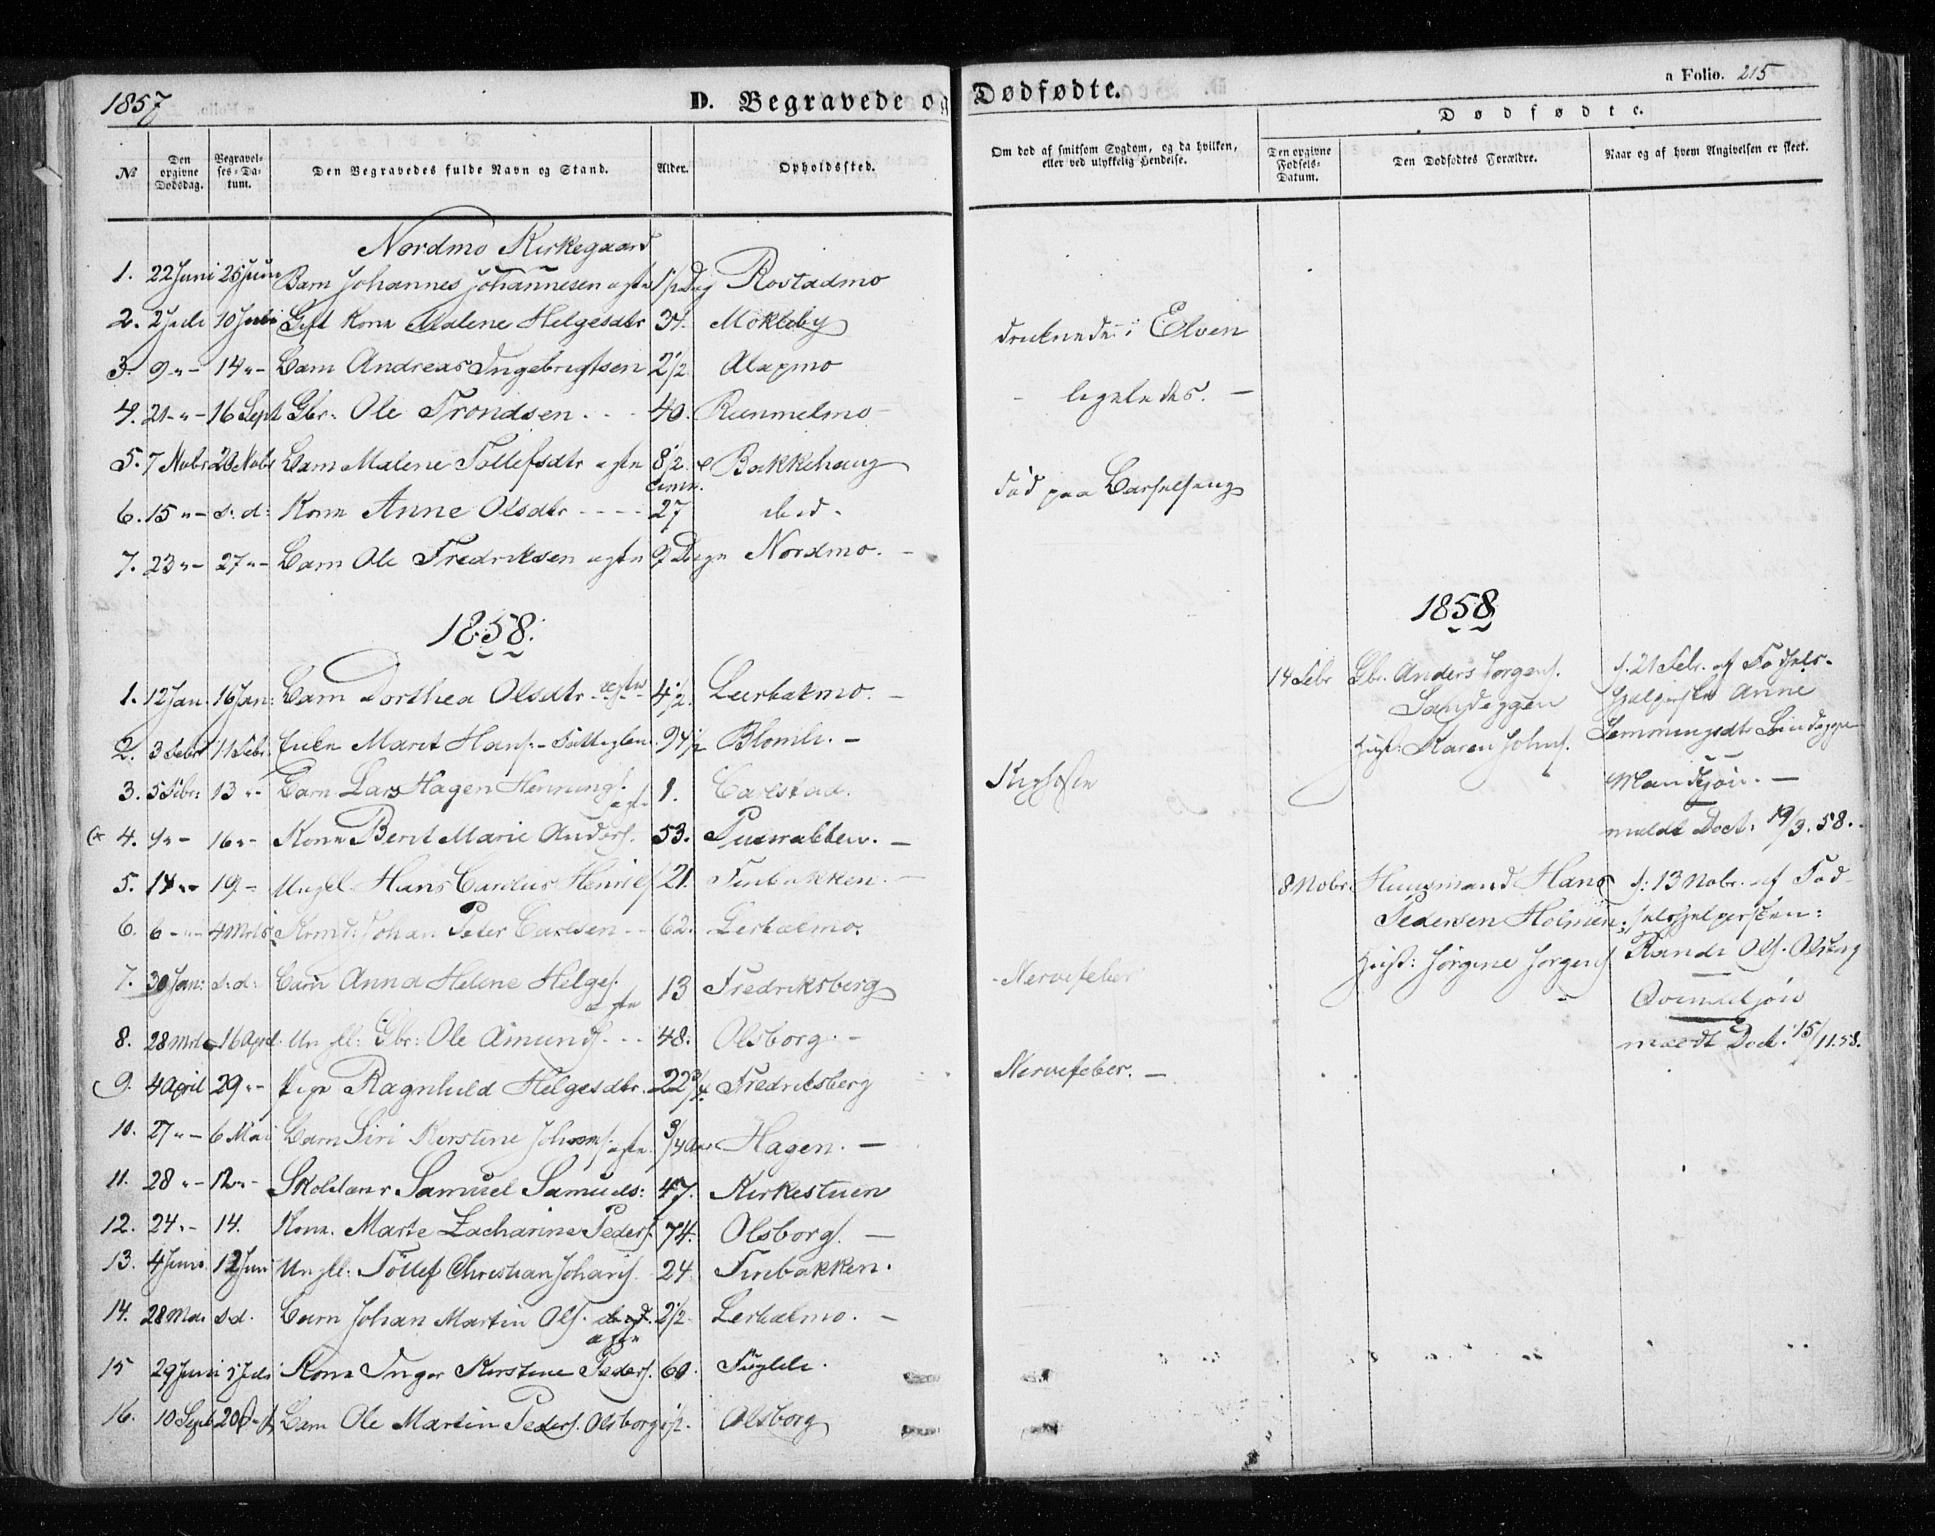 1857
D. Begravede og Dødfødte.
a Folio. 215
Dødfødte.
№ Den opgivne Dødsdag. Begravelses-Datum. Den Begravedes fulde Navn og Stand. Alder. Opholdssted. Om død af smitsom Sygdom, og da hvilken, eller ved ulykkelig Hendelse. Den opgivne Fødsels-Datum. Den Dødfødtes Forældre. Naar og af hvem Angivelsen er skeet.
Nordmo Kirkegaard
1. 22 Juni 25 Juni Barn Johannes Johannesen ægte 1/2 Dag Rostadmo
2. 2 Juli 10 Juli Gift Kone Malene Helgesdtr 34. Mokleby druknede i Elven
3. 9 " - 14 " - Barn Andreas Ingebrigtsen 2 1/2 Alapmo - ligeledes. -
4. 21 - " - 16 Sept Gbr. Ole Trondsen 40. Rummelmo -
5. 7 Nobr 20 Nobr Barn Malene Tollefsdtr ægte 8 1/2 Bakkehaug
6. 15 " - s. d: Kone Anne Olsdtr 27 ibid - død paa Barselseng
7. 23 " - 27 " - Barn Ole Fredriksen ægte 9 Dage Nordmo. -
1858.
1858
1. 12 Jan. 16 Jan: Barn Dorthea Olsdtr ægte 4 1/2 Lerbakmo. -
14 Febr Gbr. Anders Jørgens. Sandeggen
Hust: Karen Johns.
d. 21 Febr. af Fødsels-
hjelpersken Anne
Mandkjøn. -
meldt Doct. 19/3. 58.
2. 3 Febr 11 Febr. Enke Marit Hans. - Fattiglem. 94 1/2 Blomli. -
3. 5 Febr: 13 " - Barn Lars Hagen Hennings. ægte 1. Carlstad.
4. 9 " - 16 " - Kone Berit Marie Anders. 53. -
5. 14 " - 19. - Ungkl. Hans Carolus Henriks. 21. Finbakken. -
8 Nobr. Huusmand Hans
Pedersen Holmen;
Hust: Jørgine Jørgens
d: 13 Nobr. af Fød-
selshjelpersken:
Randi Ols. Olsborg
Qvindekjøn
meldt Doct. 15/11. 58.
6. 6 - " - 4 Mrts Kmd: Johan Peter Carlsen - 62. Lerbakmo.
7. 30 Jan: s. d: Barn Anna Helene Helges. ægte 13 Fredriksberg - Nervefeber
8. 28 Mrts 16 April. Ungkl: Gbr: Ole Amunds. - 48. Olsborg. -
9. 4 April 29 " - Pige Ragnhild Helgesdtr. 22 3/4 Fredriksberg Nervefeber. -
10. 27 " - 6 Mai Barn Siri Kerstine Johns. ægte 3/4 Aar Hagen. -
11. 28 " - 12 " - Skolelærer Samuel Samuels: 47. Kirkestuen
12. 24 " - 14. Kone. Marte Zacharine Peders. 74. Olsborg. -
13. 4 Juni 12 Juni Ungkl. Tollef Christian Johans. 24. Finbakken.
14. 28 Mai s d. Barn Johan Martin Ols. ægte 2 1/2 Lerbakmo. -
15 29 Juni 5 Juli Kone Inger Kerstine Peders. 60. Fuglli.
16. 10 Sept 20 Barn Ole Martin Peders. Olsborg 1/2. Olsborg